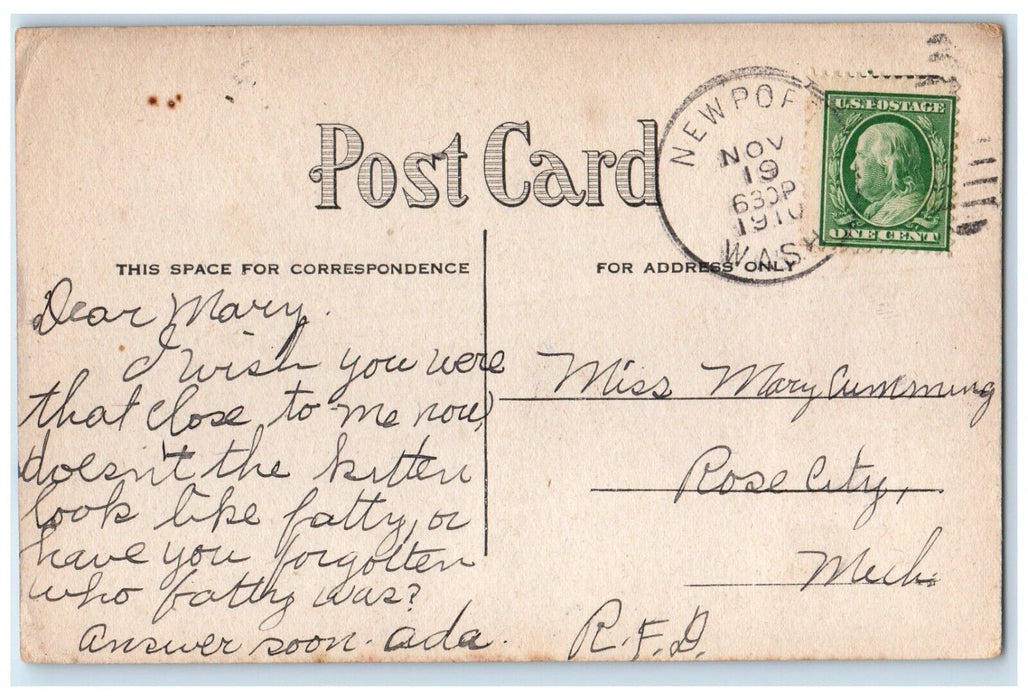 Post Card
NEWPORT
NOV
19
630P
1910
WASH
U.S. POSTAGE
ONE CENT
THIS SPACE FOR CORRESPONDENCE
FOR ADDRESS ONLY
Dear Mary.
I wish you were
that close to me now,
doesn't the kitten
look like fatty, or
have you forgotten
who fatty was?
answer soon. Ada.
Miss Mary Cumming
Rose City,
Mich.
R.F.D.